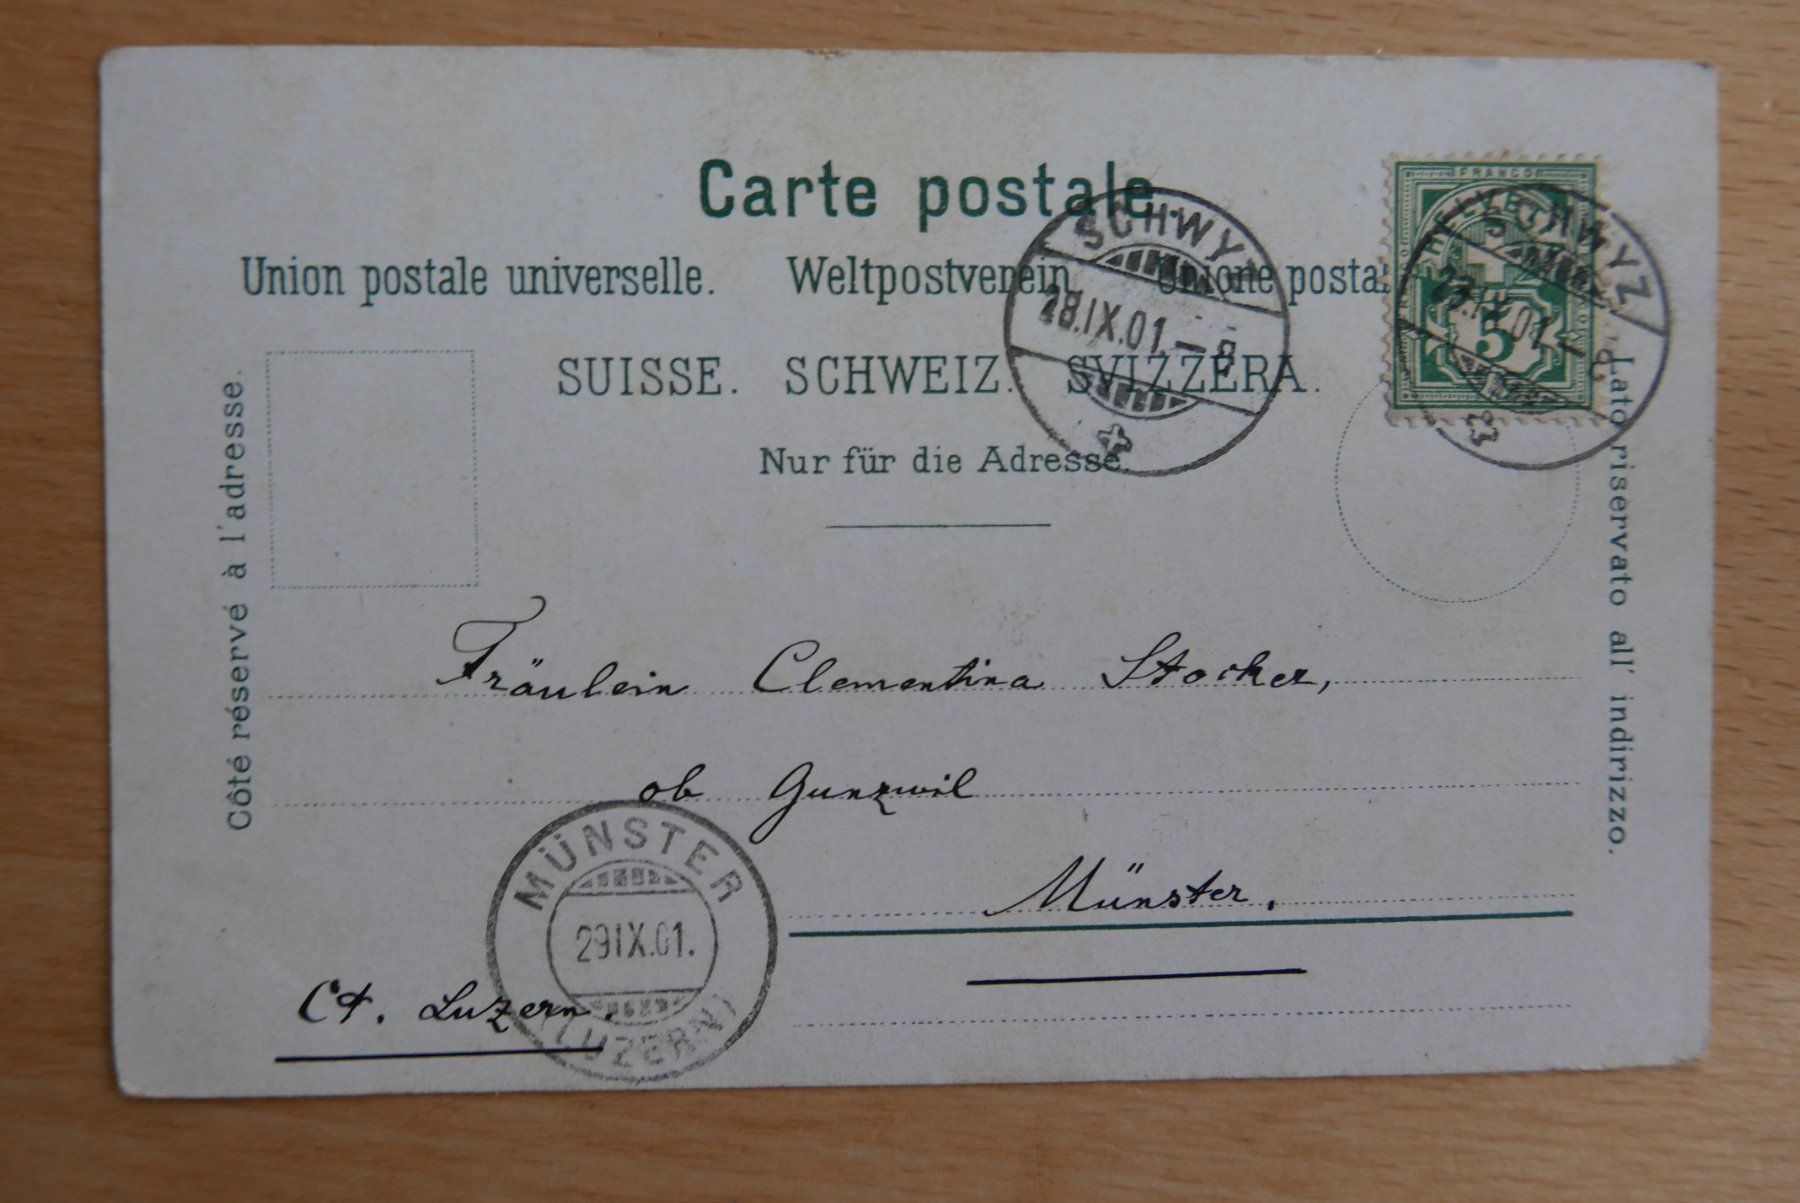 Carte postale.
Union postale universelle. Weltpostverein. Unione posta
SUISSE. SCHWEIZ. SVIZZERA.
Nur für die Adresse.
Côté réservé à l'adresse.
Lato riservato all' indirizzo.
SCHWYZ
28.IX.01.–8
FRANCO
HELVETIA
5
SCHWYZ
IX.01.–8
Fräulein Clementina Stocker,
ob Gunzwil
Münster.
Ct. Luzern.
MÜNSTER
29IX.01.
(LUZERN)